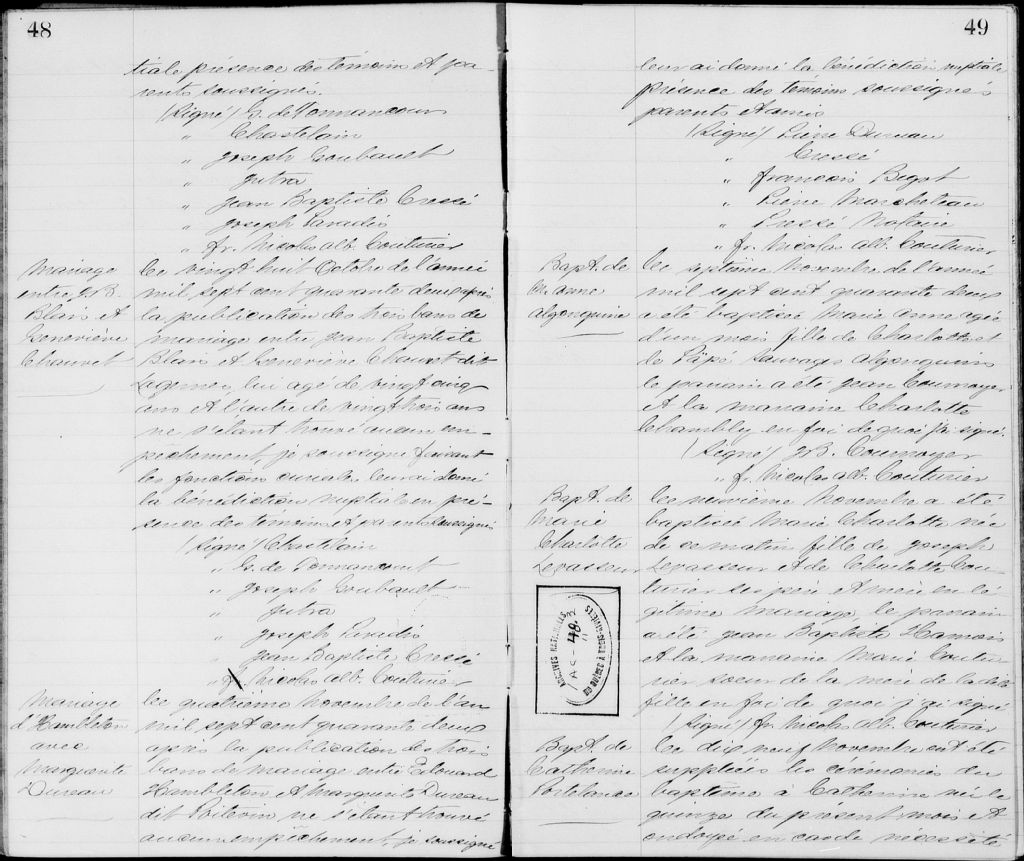 48
tiale présence des témoins et pa-
rents soussignés.
(Signé) G. de Tonnancour
" Chastelain
" Joseph Goubault
" Jutra
" Jean Baptiste Cressé
" Joseph Paradis
" fr. Nicolas alb. Couturier
Mariage
entre J. B.
Blais et
Geneviève
Chauvet
Le vingt huit Octobre de l'année
mil sept cent quarante deux après
la publication des trois bans de
mariage entre Jean Baptiste
Blais et Geneviève Chauvet dit
lui agé de vingt cinq
ans et l'autre de vingt trois ans
ne s'étant trouvé aucun em-
pechement, je soussigné faisant
les fonction curiales leur ai donné
la bénédiction nuptiale en pré-
sence des temoins et parents soussignés
(Signé) Chastelain
" G. de Tonnancourt
" Joseph Goubault
" Jutra
" Joseph Paradis
" Jean Baptiste Cressé
" fr. Nicolas alb. Couturier
Mariage
d'Hambleton
avec
Marguerite
Dureau
Le quatrième Novembre de l'an
mil sept cent quarante deux
après la publication de trois
bans de mariage entre Edouard
Hambleton et Marguerite Dureau
dit Poitevin ne s'étant trouvé
aucun empêchement, je soussigné
49
leur ai donné la bénédiction nuptiale
présence des témoins soussignés
parents et amis
(Signé) Pierre Dureau
" Cressé
" François Bigot
" Pierre Marcheteau
" Pressé Notaire
" fr. Nicolas alb. Couturier
Bapt. de
Me anne
algonquine
Le septième Novembre de l'année
mil sept cent quarante deux
a été baptisée Marie Anne agée
d'un mois fille de Charlotte et
de Pápé Sauvages algonquins
le parrain a été Jean Cournoyer
et la marraine Charlotte
Chambly, en foi de quoi j'ai signé.
(Signé) J. B. Cournoyer
" fr. Nicolas alb. Couturier
Bapt. de
Marie
Charlotte
Levasseur
Le neuvième Novembre a été
baptisée Marie Charlotte née
de ce matin fille de Joseph
Levasseur et de Charlotte Cou-
turier ses père et mère en lé-
gitime mariage, le parrain
a été Jean Baptiste Hamois
et la marraine Marie Coutu-
rier soeur de la mere de la dite
fille en foi de quoi j'ai signé
(Signé) fr. Nicolas alb. Couturier
ARCHIVES NATIONALES
DU QUÉBEC À TROIS-RIVIÈRES
Bapt. de
Catherine
Portelance
Le dix neuf Novembre ont été
suppléées les cérémonies du
baptême à Catherine née le
quinze du présent mois et
ondoyée en cas de nécessité